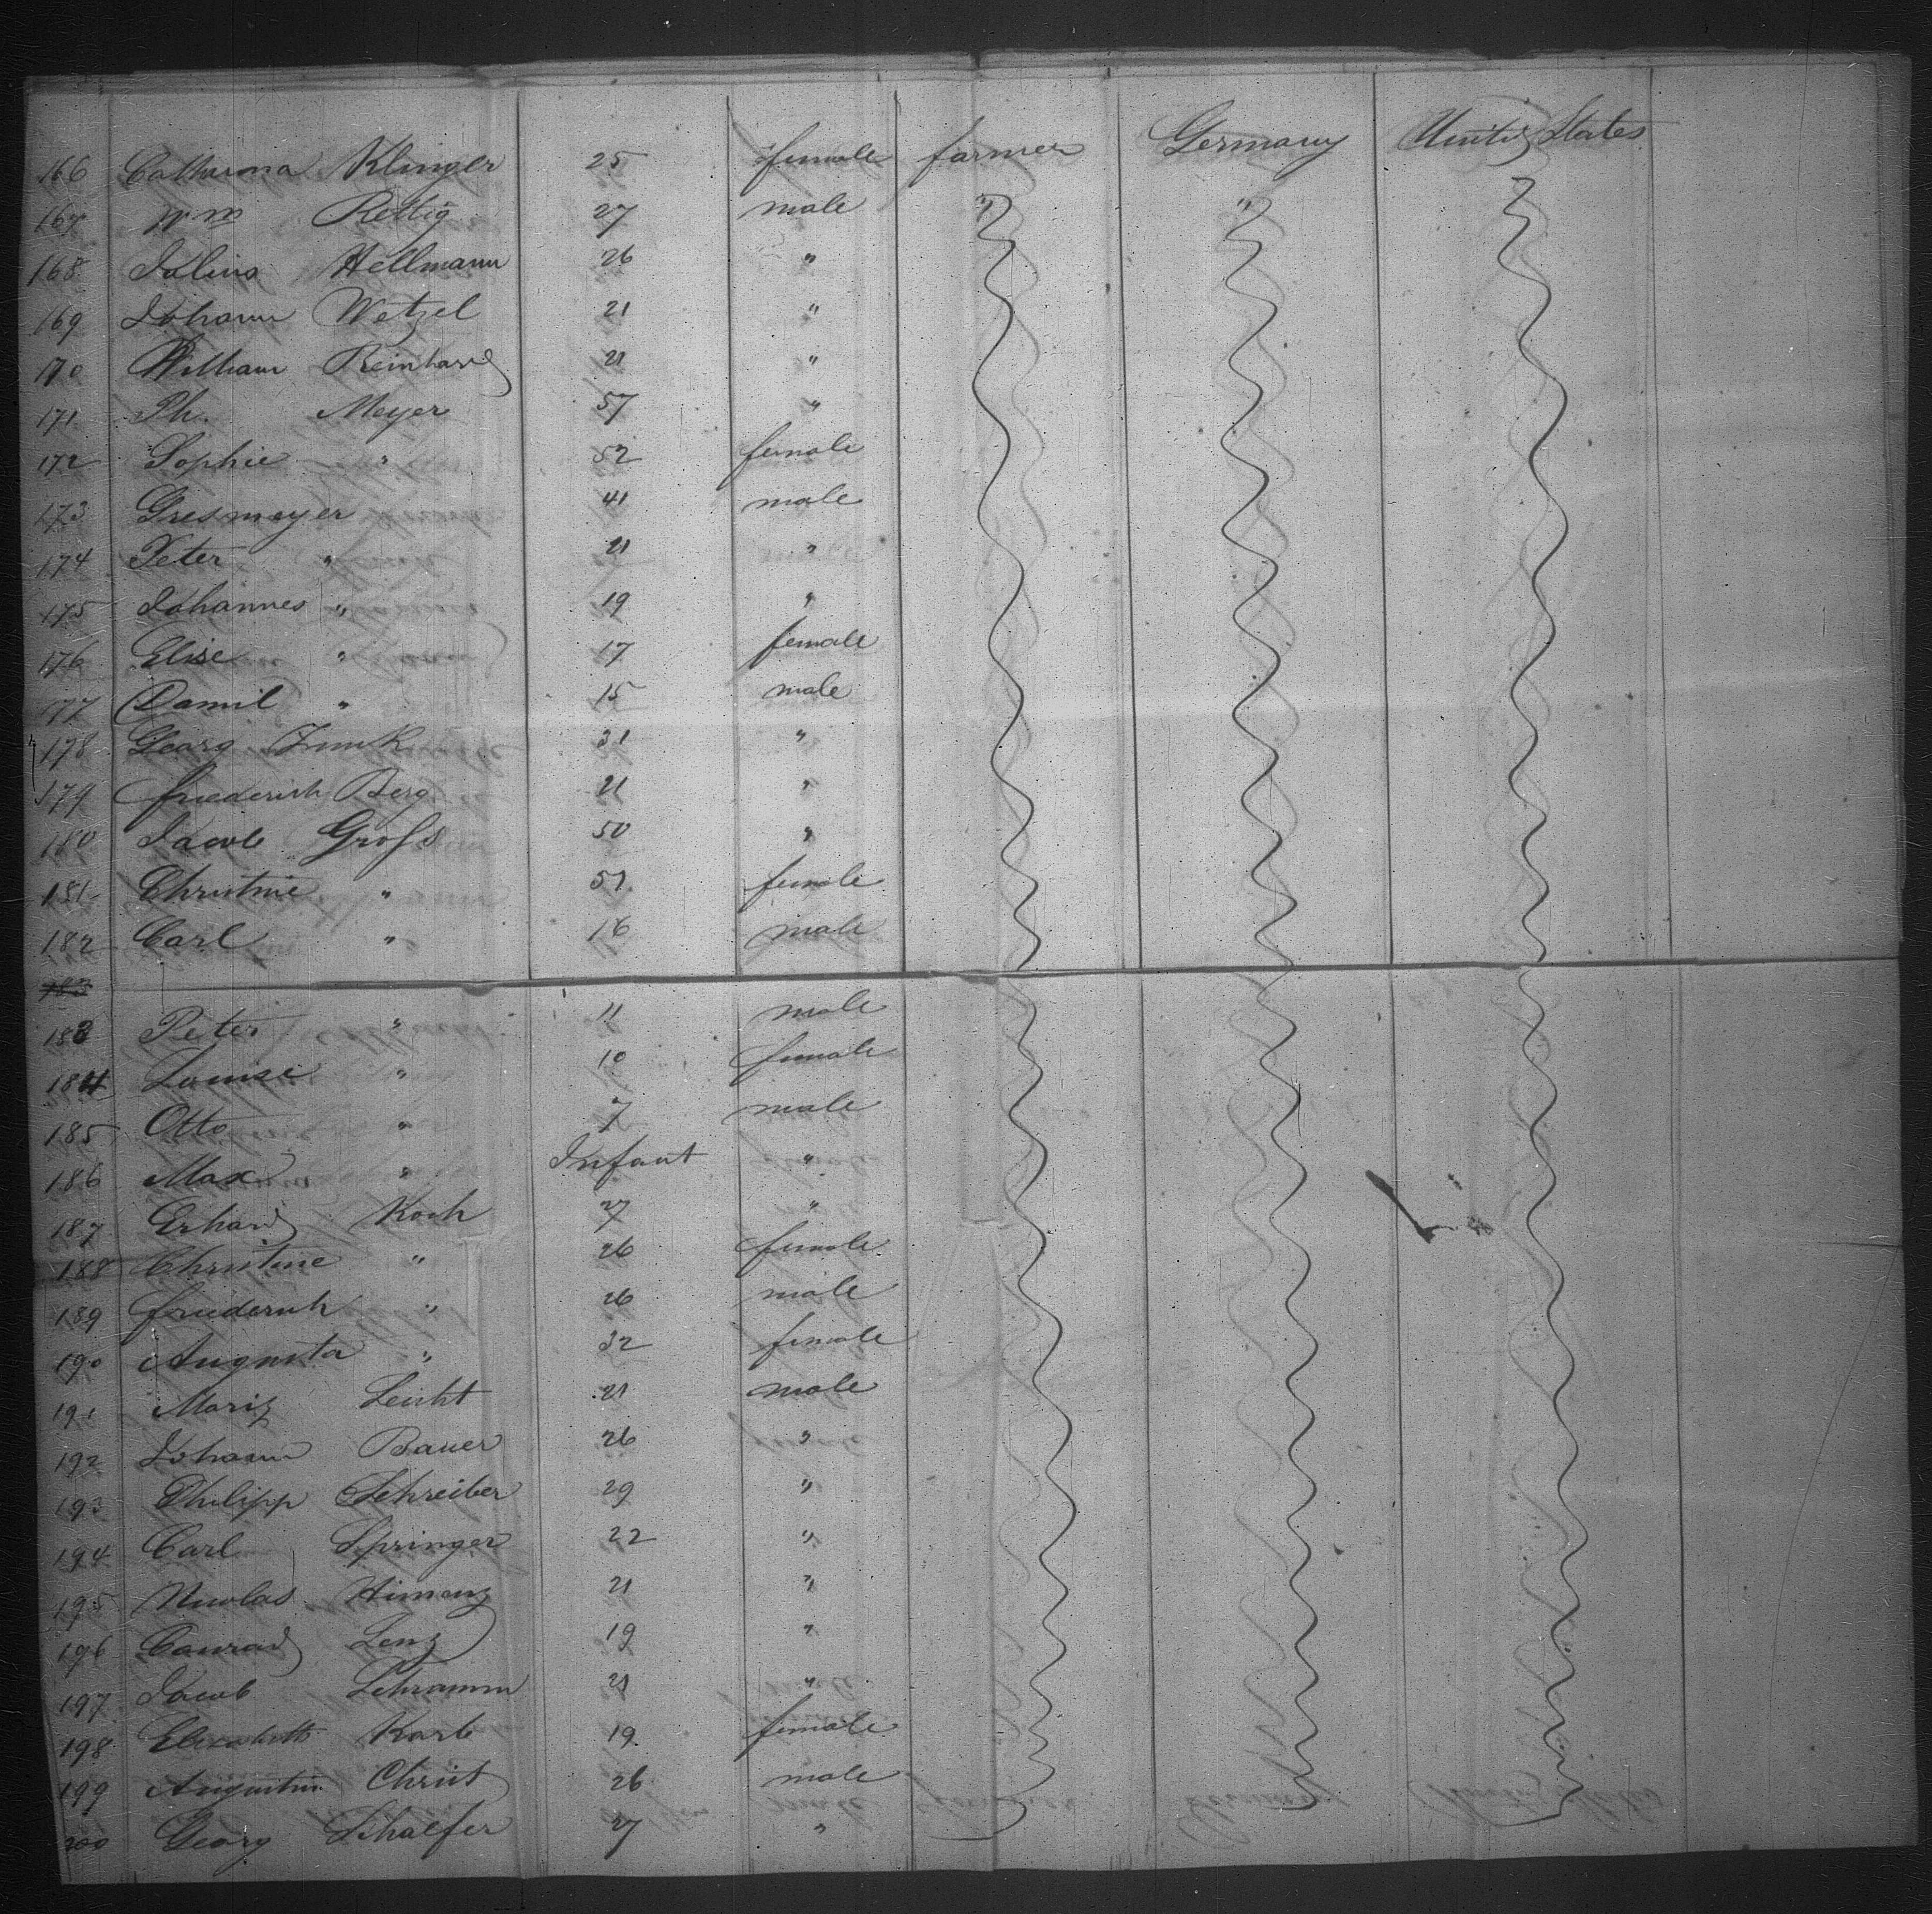 166 Catharina Klinger 25 female farmer Germany United States
167 Wm Rettig 27 male " "
168 Julius Hellmann 26 "
169 Johann Wetzel 21 "
170 William Reinhard 21 "
171 Ph. Meyer 57 "
172 Sophie " 52 female
173 Gresmeyer 41 male
174 Peter " 21 "
175 Johannes " 19 "
176 Elise " 17 female
177 Daniel " 15 male
178 Georg Funk 31 "
179 Friederich Berg 21 "
180 Jacob Groſs 50 "
181 Christine " 51 female
182 Carl " 16 male
183
183 Peter " 11 male
184 Louise " 10 female
185 Otto " 7 male
186 Max " Infant "
187 Erhard Koch 27 "
188 Christine " 26 female
189 Friederich " 26 male
190 Augusta " 32 female
191 Moriz Leicht 21 male
192 Johann Bauer 26 "
193 Philipp Schreiber 29 "
194 Carl Springer 22 "
195 Nicolas 21 "
196 Conrad Lenz 19 "
197 Jacob Schramm 21 "
198 Elizabeth Karb 19 female
199 Augustin Christ 26 male
200 Georg Schaefer 27 "